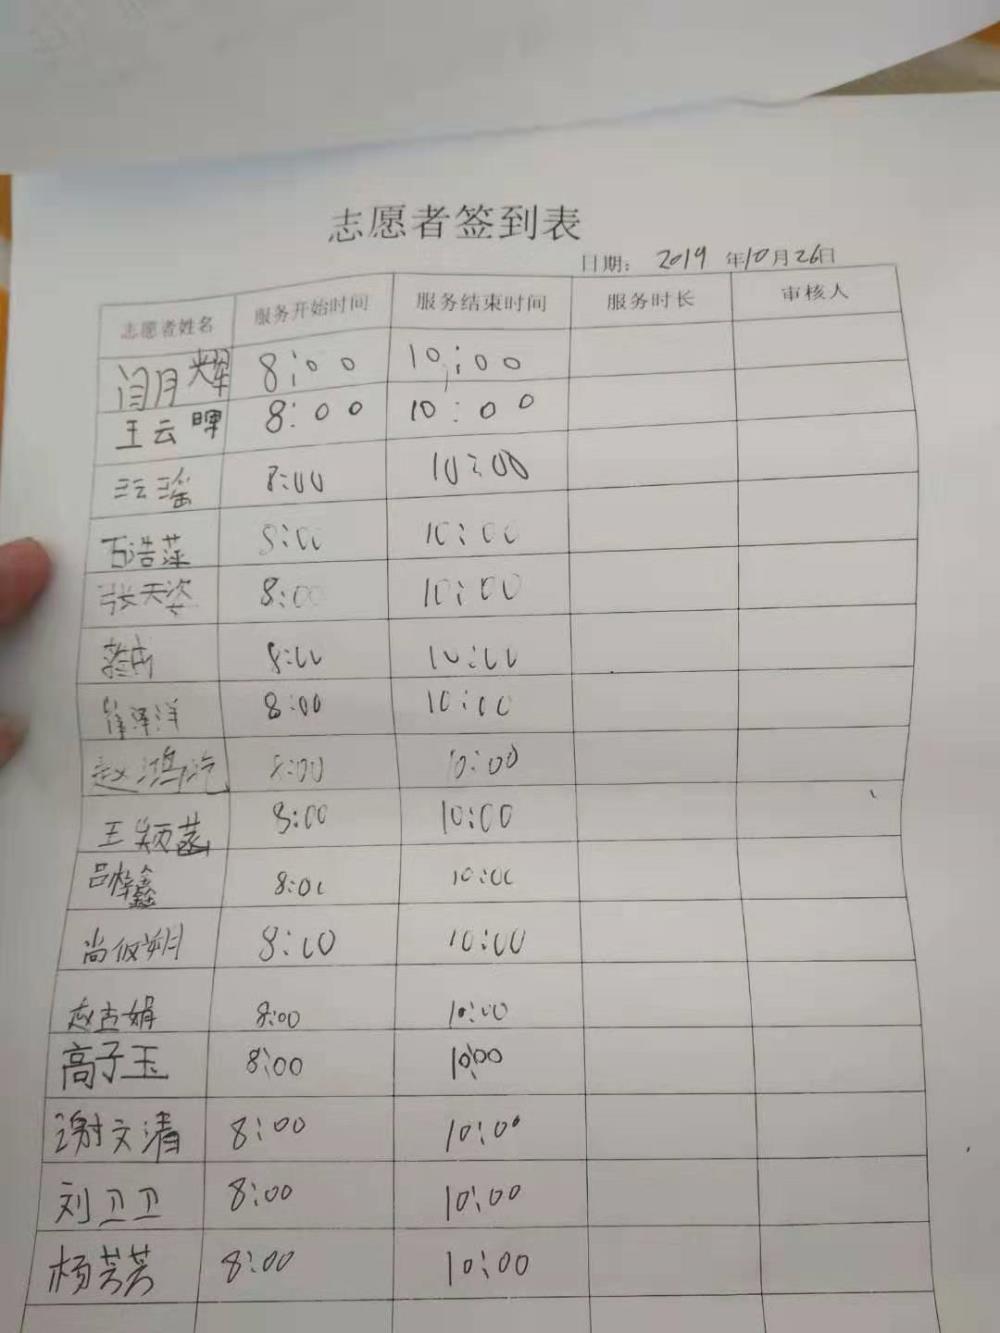 志愿者签到表
日期: 2019 年10月26日
志愿者姓名 服务开始时间 服务结束时间 服务时长 审核人
闫月耀 8:00 10:00
王云暉 8:00 10:00
汪瑶 8:00 10:00
石浩萍 8:00 10:00
张天姿 8:00 10:00
8:00 10:00
崔泽洋 8:00 10:00
赵鸿 8:00 10:00
王颖 8:00 10:00
吕梓鑫 8:00 10:00
尚俊朔 8:00 10:00
赵吉娟 8:00 10:00
高子玉 8:00 10:00
谢文清 8:00 10:00
刘卫卫 8:00 10:00
杨芳芳 8:00 10:00